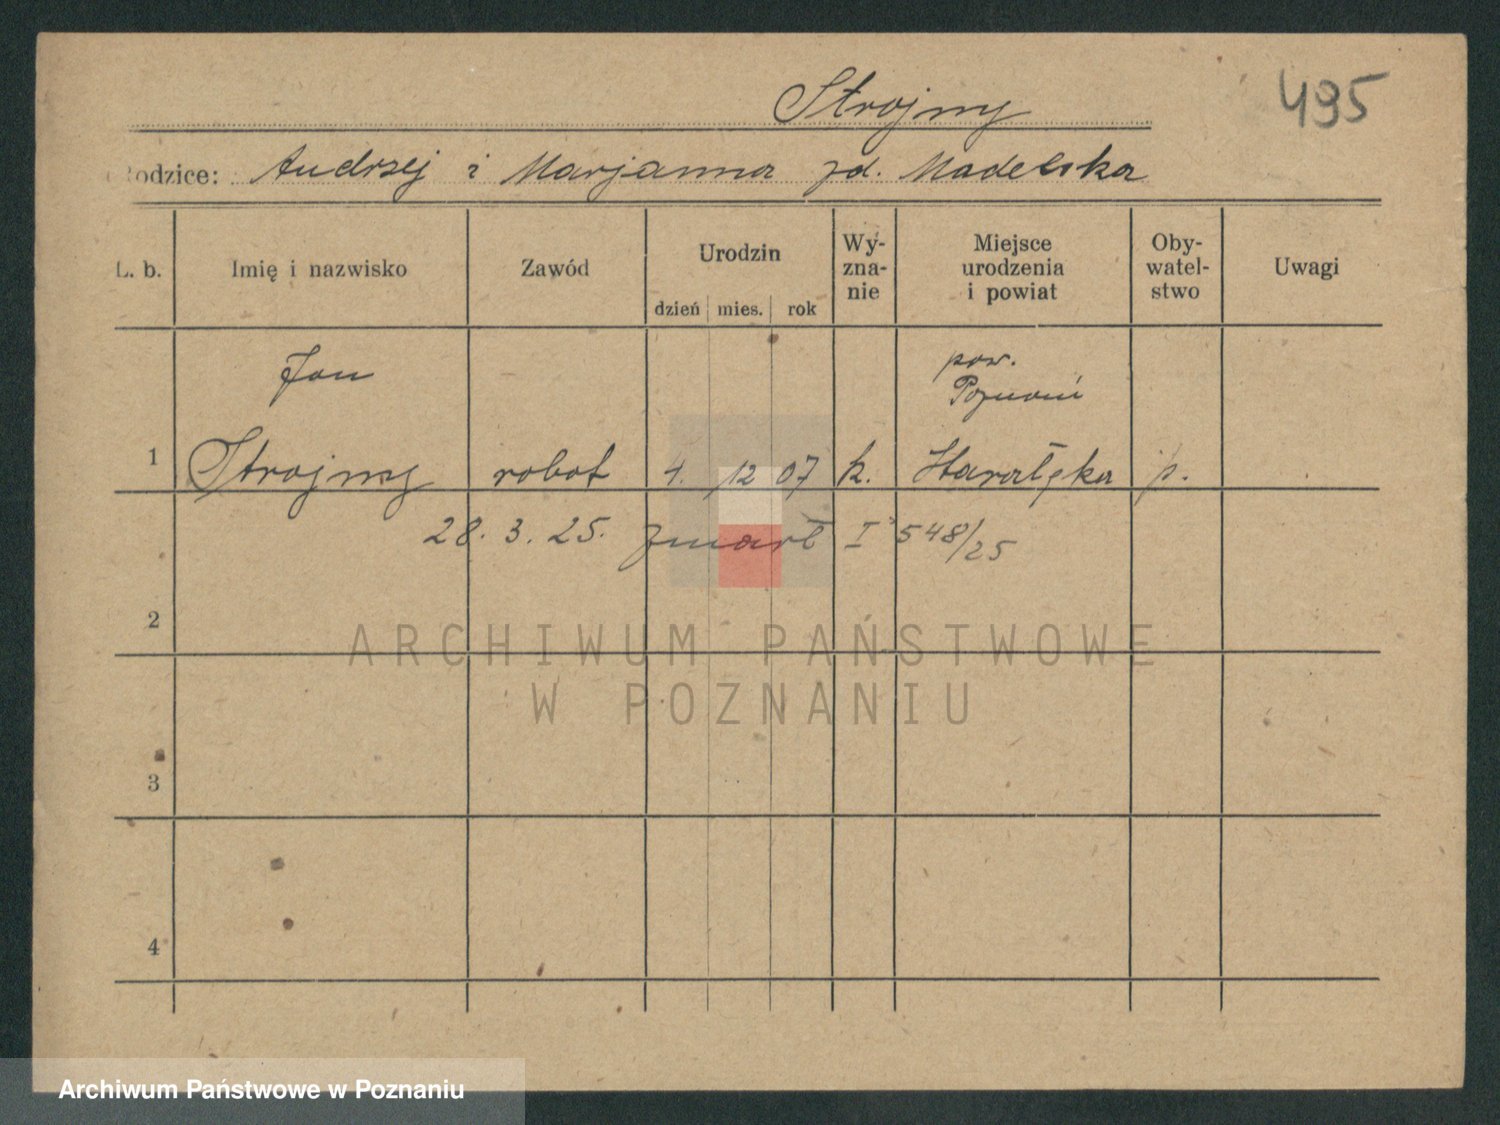 495
Strojny
Rodzice: Andrzej i Marjanna zd. Madelska
L. b. Imię i nazwisko Zawód Urodzin dzień mies. rok Wy-zna-nie Miejsce urodzenia i powiat Oby-watel-stwo Uwagi
Jan pow. Poznań
1 Strojny robot 4. 12 07 k. Starołęka p.
28. 3. 25. zmarł I 548/25
2
ARCHIWUM PAŃSTWOWE
W POZNANIU
3
4
Archiwum Państwowe w Poznaniu